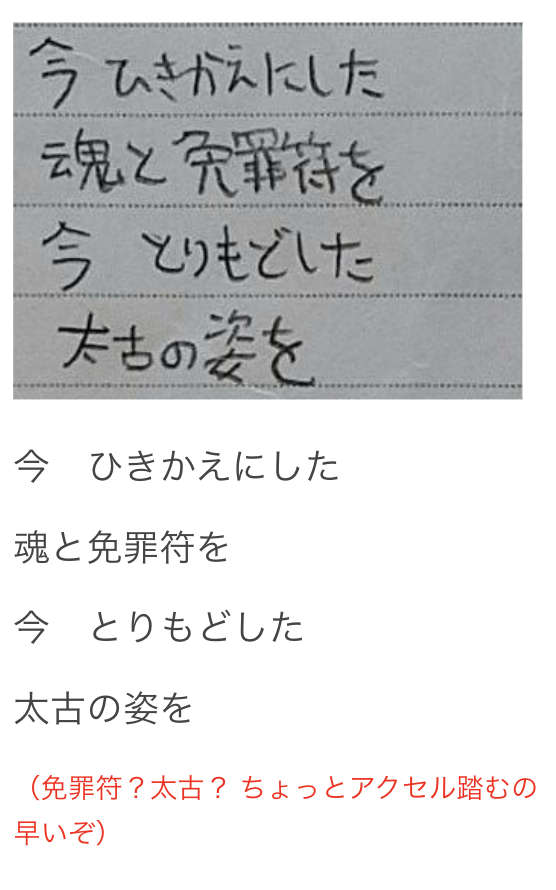 今 ひきかえにした
魂と免罪符を
今 とりもどした
太古の姿を
今　ひきかえにした
魂と免罪符を
今　とりもどした
太古の姿を
（免罪符？太古？ ちょっとアクセル踏むの
早いぞ）